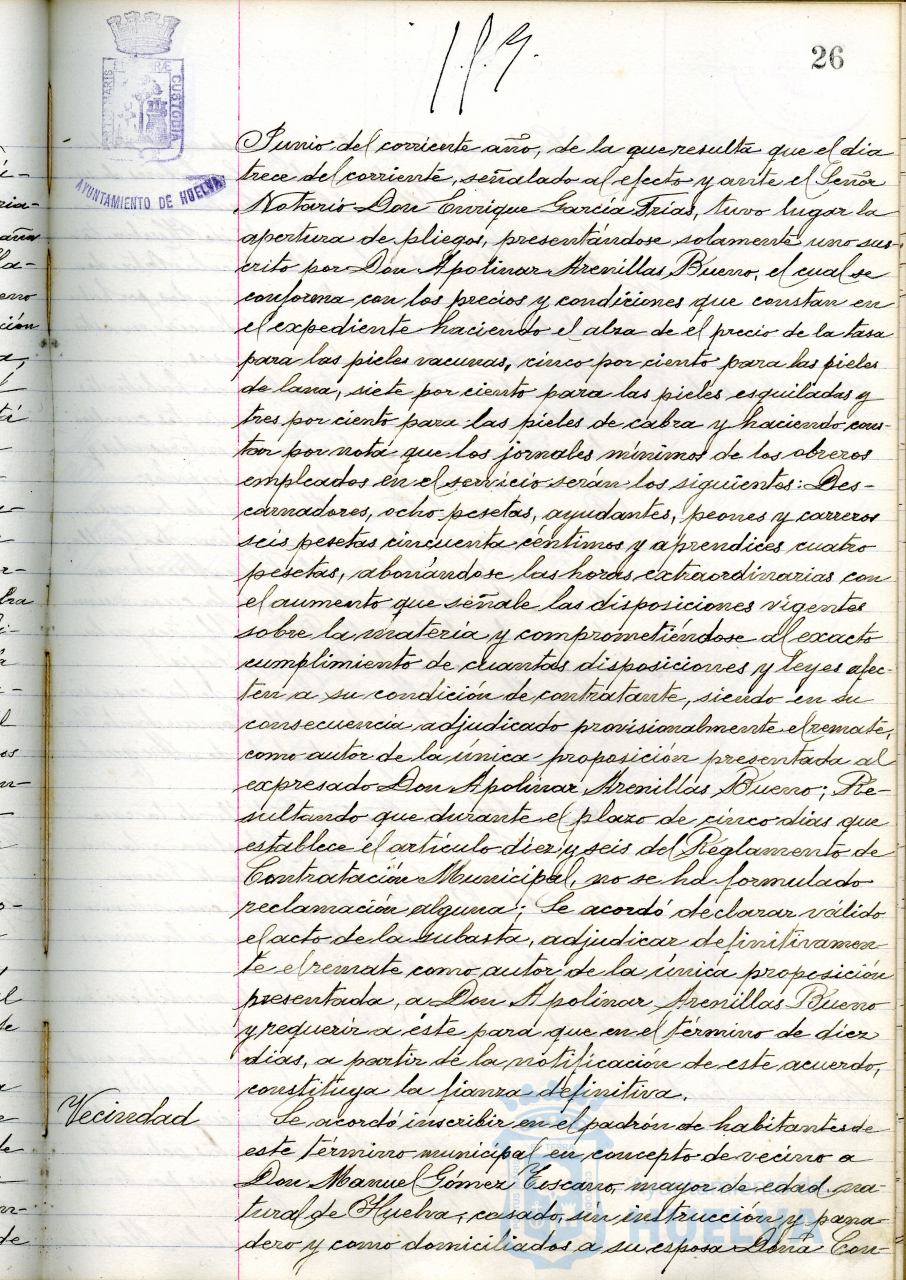 26
AYUNTAMIENTO DE HUELVA
CUSTODIA
Junio del corriente año, de la que resulta que el dia
trece del corriente, señalado al efecto y ante el Señor
Notario Don Enrique García Frías, tuvo lugar la
apertura de pliegos, presentándose solamente uno sus-
crito por Don Apolinar Arenillas Bueno, el cual se
conforma con los precios y condiciones que constan en
el expediente haciendo el alza de el precio de la tasa
para las pieles vacunas, cinco por ciento para las pieles
de lana, siete por ciento para las pieles esquiladas y
tres por ciento para las pieles de cabra y haciendo cons-
tar por nota que los jornales mínimos de los obreros
empleados en el servicio serán los siguientes: Des-
carnadores, ocho pesetas, ayudantes, peones y carreros
seis pesetas cincuenta céntimos y aprendices cuatro
pesetas, abonándose las horas extraordinarias con
el aumento que señale las disposiciones vigentes
sobre la materia y comprometiéndose al exacto
cumplimiento de cuantas disposiciones y leyes afec-
ten a su condición de contratante, siendo en su
consecuencia adjudicado provisionalmente el remate,
como autor de la única proposición presentada al
expresado Don Apolinar Arenillas Bueno; Re-
sultando que durante el plazo de cinco dias que
establece el artículo diez y seis del Reglamento de
Contratación Municipal, no se ha formulado
reclamación alguna; Se acordó declarar válido
el acto de la subasta, adjudicar definitivamen-
te el remate como autor de la única proposición
presentada, a Don Apolinar Arenillas Bueno
y requerir a éste para que en el término de diez
dias, a partir de la notificación de este acuerdo,
constituya la fianza definitiva.
Vecindad
Se acordó inscribir en el padrón de habitantes de
este término municipal en concepto de vecino a
Don Manuel Gómez Toscano, mayor de edad, na-
tural de Huelva, casado, sin instrucción y pana-
dero y como domiciliados a su esposa Doña Con-
Ayuntamiento de
HUELVA